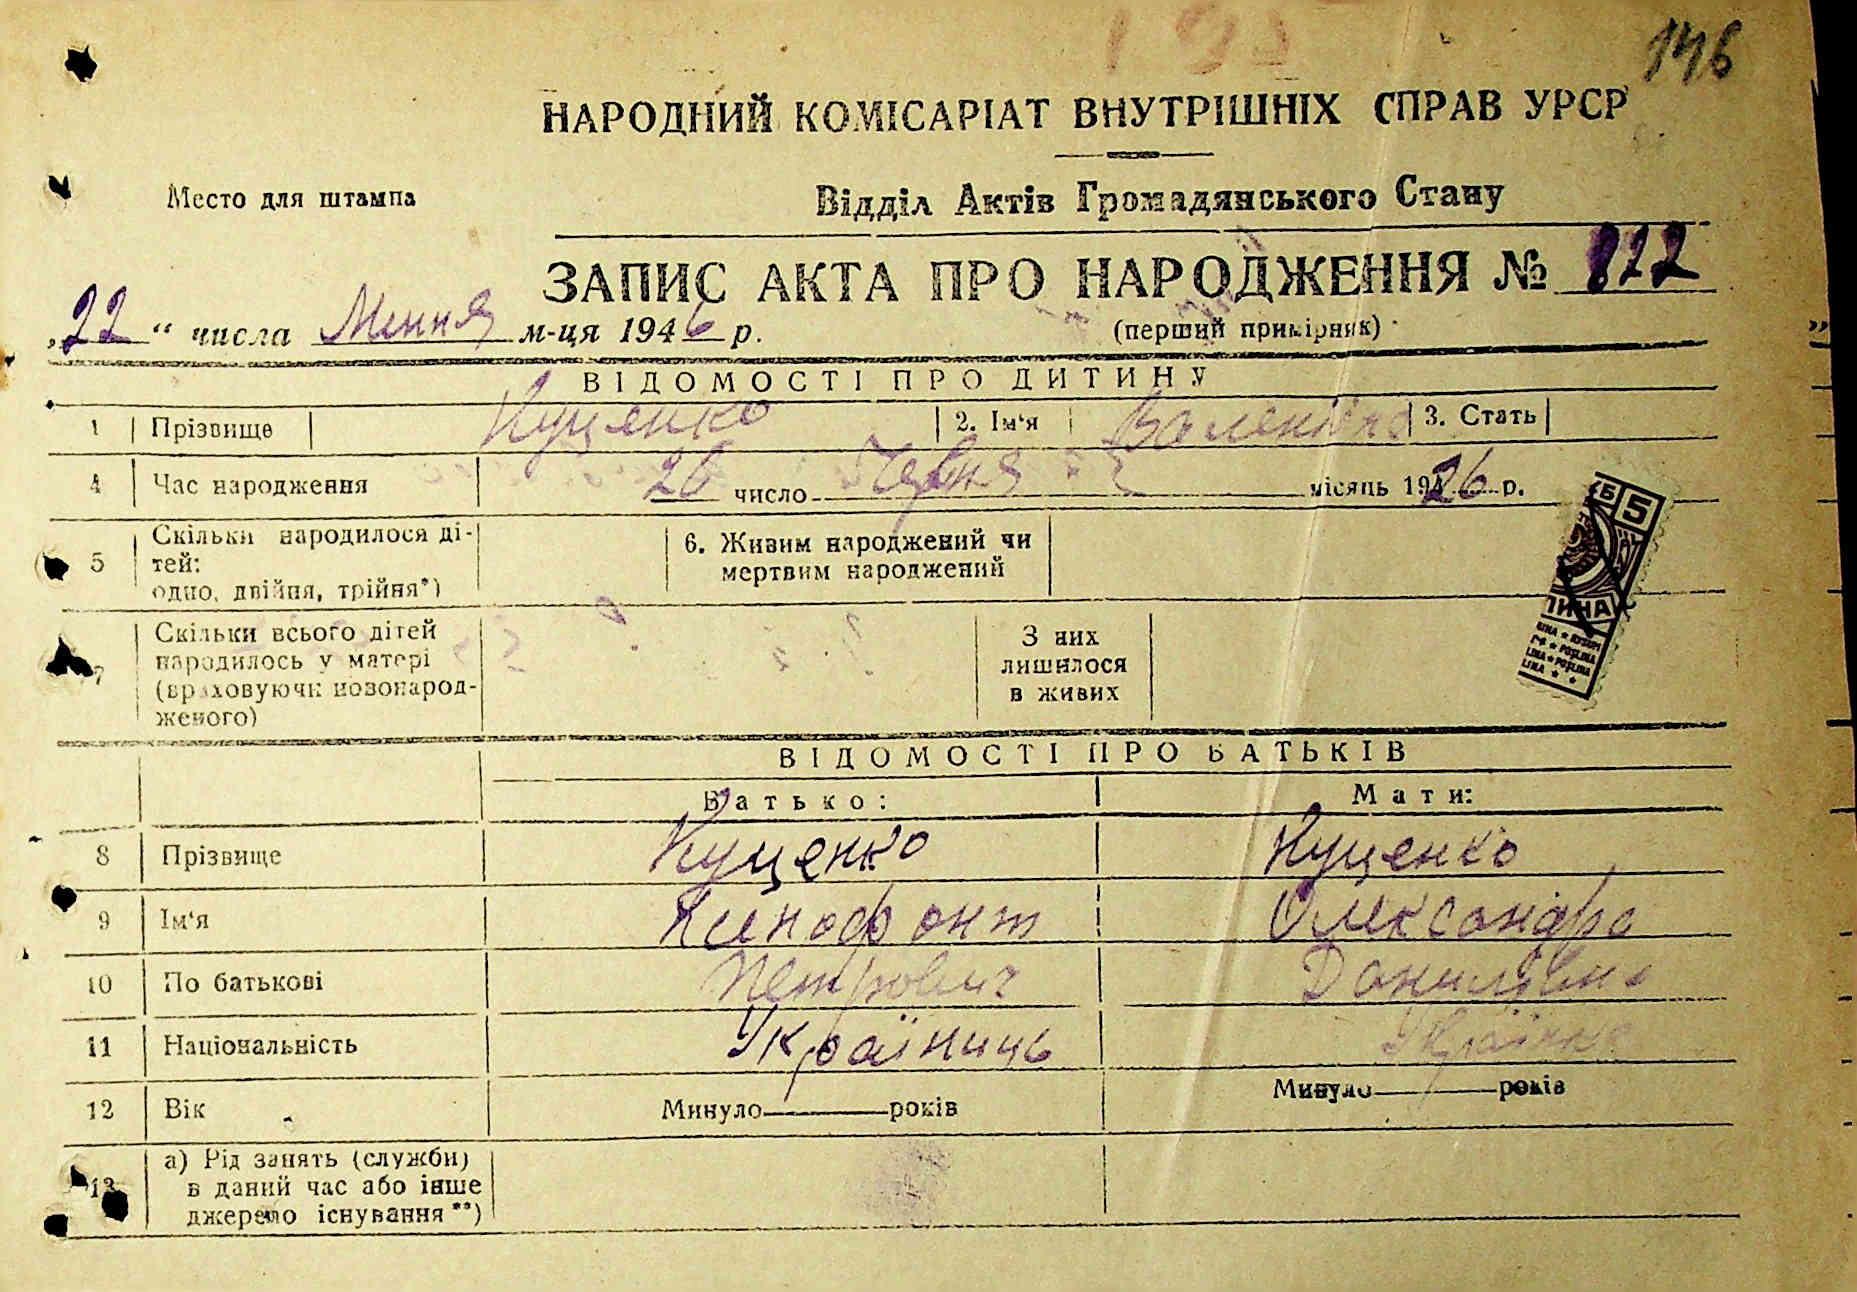 146
НАРОДНИЙ КОМІСАРІАТ ВНУТРІШНІХ СПРАВ УРСР
Место для штампа
Відділ Актів Громадянського Стану
ЗАПИС АКТА ПРО НАРОДЖЕННЯ № 822
„22“ числа м-ця 1946 р.
(перший примірник)
ВІДОМОСТІ ПРО ДИТИНУ
1 Прізвище Куценко 2. Ім‘я Валентина 3. Стать
4 Час народження 26 число Червня місяць 1926 р.
5 Скільки народилося ді-
тей:
одно, двійня, трійня*)
6. Живим народжений чи
мертвим народжений
7 Скільки всього дітей
народилось у матері
(враховуючи новонарод-
женого)
З них
лишилося
в живих
КБ 5
ВІДОМОСТІ ПРО БАТЬКІВ
Батько: Мати:
8 Прізвище Куценко Куценко
9 Ім‘я Ксенофонт Олександра
10 По батькові Петрович Данилівна
11 Національність Україниць Українка
12 Вік Минуло років Минуло років
13 а) Рід занять (служби)
в даний час або інше
джерело існування**)